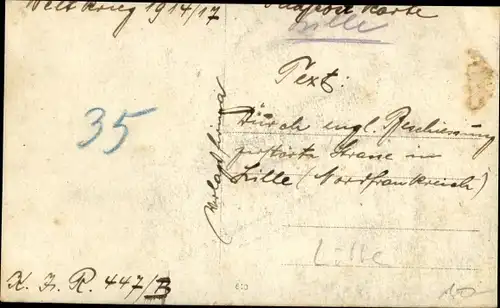 Weltkrieg 1914/17
Karte
Lille
Text:
35
Durch engl. Beschiessung
zerstörte Strasse in
Lille (Nordfrankreich)
Lille
K. J. R. 447/B